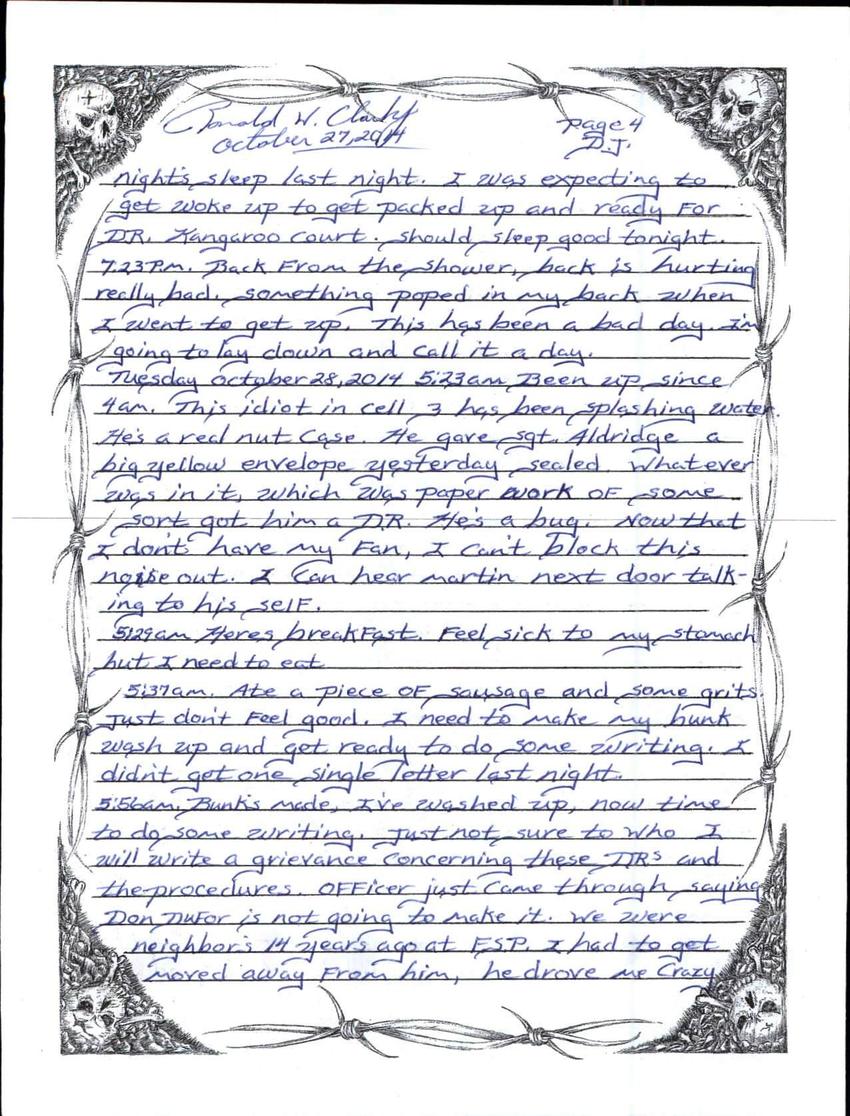 Ronald W. Clark Jr
October 27, 2014
page 4
D.J.
night's sleep last night. I was expecting to
get woke up to get packed up and ready For
D.R. Kangaroo court. Should sleep good tonight.
7:23P.m. Back From the shower, back is hurting
really bad, something poped in my back when
I went to get up. This has been a bad day. I'm
going to lay down and call it a day.
Tuesday October 28, 2014 5:23am Been up since
4am. This idiot in cell 3 has been splashing water.
He's a real nut case. He gave Sgt. Aldridge a
big yellow envelope yesterday sealed. Whatever
was in it, which was paper work OF some
sort got him a D.R. He's a bug. Now that
I don't have my Fan, I can't block this
noise out. I can hear martin next door talk-
ing to his selF.
5:29am Heres breakFast. Feel sick to my stomach
but I need to eat
5:37am. Ate a piece OF sausage and some grits.
Just don't Feel good. I need to make my bunk
wash up and get ready to do some writing. I
didn't get one single letter last night.
5:56am. Bunk's made, I've washed up, now time
to do some writing. Just not sure to who I
will write a grievance concerning these DRs and
the procedures. OFFicer just came through saying
Don Dufor is not going to make it. We were
neighbor's 14 years ago at F.S.P. I had to get
moved away From him, he drove me crazy